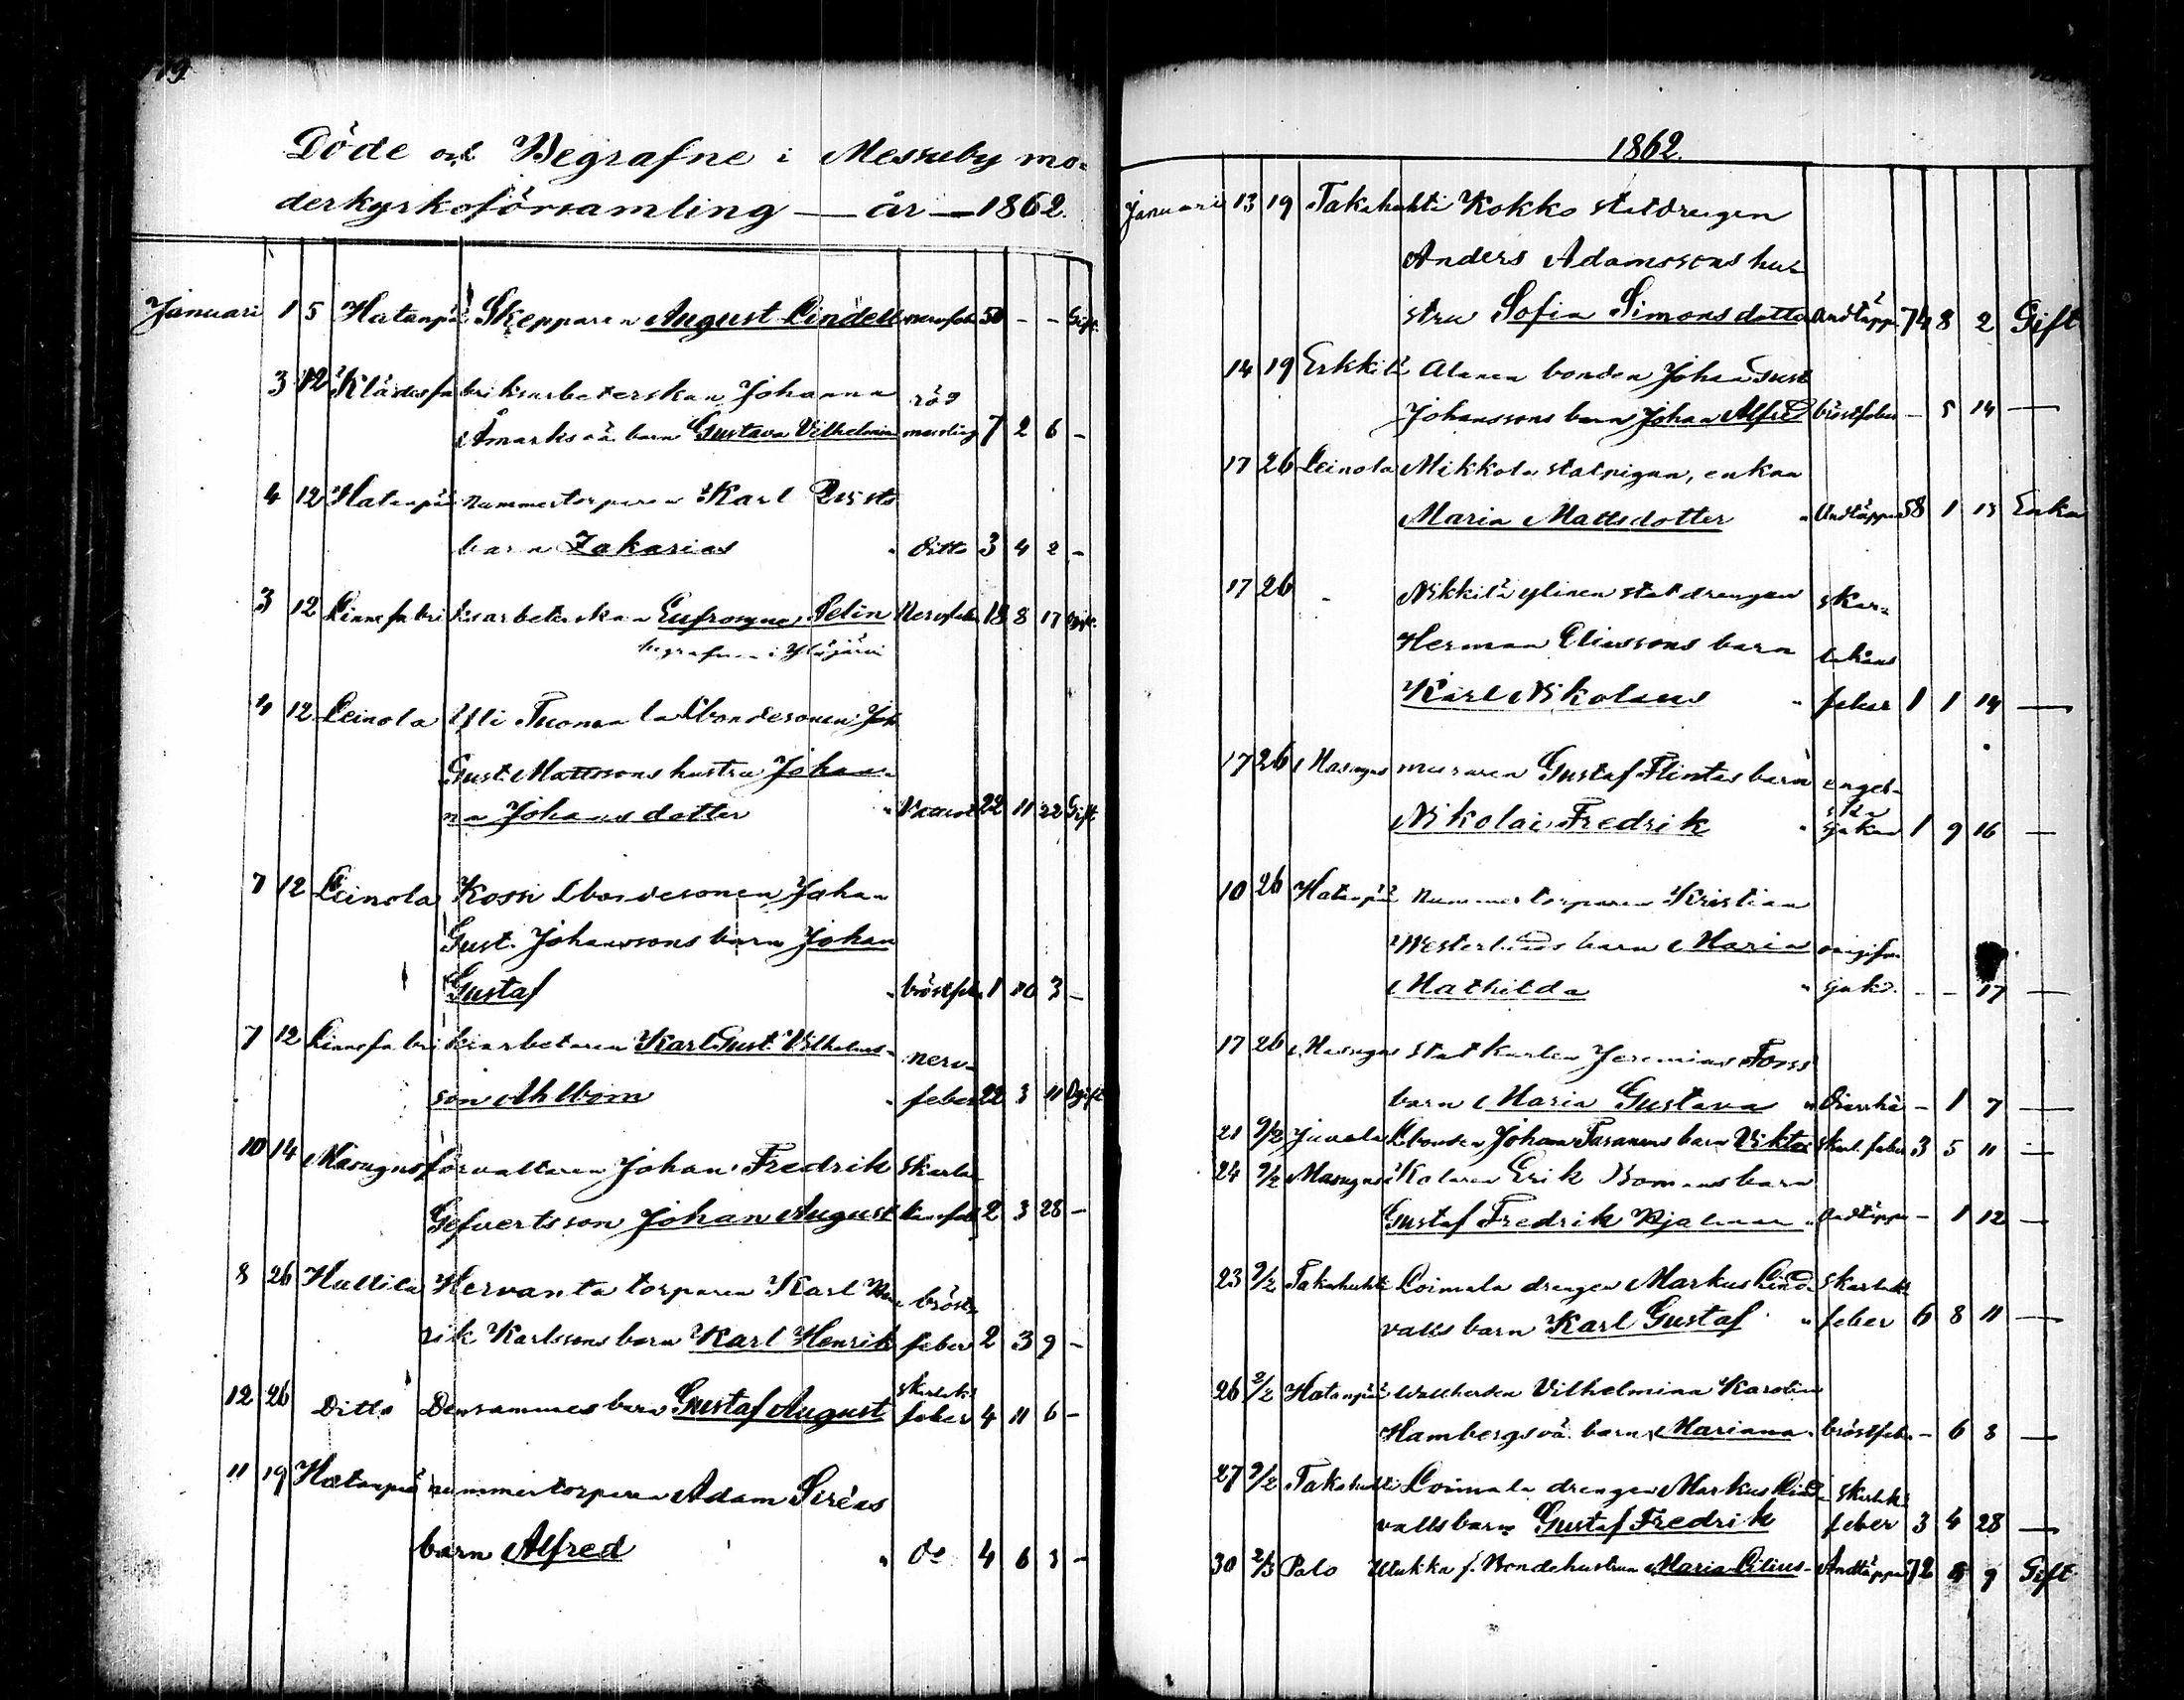 Döde och Begrafne i Messuby mo-
derkyrkoförsamling — år — 1862.
Januari 1 5 Hatanpää Skepparen August Lindell nervfeb. 50 - - Gift
3 12 Klädesfabriksarbeterskan Johanna röd
Åmarks oä. barn Gustava Vilhelmina messling 7 2 6 -
4 12 Hatanpää nummertorparen Karl
barn Zakarias " ditto 3 4 2 -
3 12 Linnefabriksarbeterskan Eufrosyne Selin Nervfeber 18 8 17 Ogift
begrafven i Ylöjärvi
4 12 Leinola Yli Tuomala bondesonen Joh.
Gust. Mattssons hustru Johan-
na Johansdotter " 22 11 22 Gift
7 12 Leinola Kossi bondesonen Johan
Gust. Johanssons barn Johan
Gustaf " bröstfeb. 1 10 3 -
7 12 Linnefabriksarbetaren Karl Gust. Vilhelms- nerv-
son Ahlbom " feber 22 3 11 Ogift
10 14 Masugnsförvaltaren Johan Fredrik Skarla-
Gefverts son Johan August kansfeb. 2 3 28 -
8 26 Hallila Hervanta torparen Karl Hen- bröst-
rik Karlssons barn Karl Henrik feber 2 3 9 -
12 26 Ditto Densammes barn Gustaf August skarlak. feber 4 11 6 -
11 19 Hatanpää nummertorparen Adam Siréns
barn Alfred " do 4 6 3 -
1862.
Januari 13 19 Takahuhti Kokko statdrengen
Anders Adamssons hu-
stru Sofia Simonsdotter Andtäppa 74 8 2 Gift
14 19 Erkkilä Alanen bonden Johan Gust
Johanssons barn Johan Alfred bröstfeber - 5 14 —
17 26 Leinola Mikkola statpigan, enkan
Maria Mattsdotter " Andtäppa 58 1 13 Enka
17 26 " Nikkilä ylinen statdrengen skar-
Herman Eliassons barn lakans
Karl Nikolaus " feber 1 1 14 —
17 26 Masugns muraren Gustaf Flintas barn engel-
ska
Nikolai Fredrik " sjukan 1 9 16 —
10 26 Hatanpää Nummertorparen Kristian
Westerlunds barn Maria
Mathilda " sjuk. - - 17 —
17 26 Masugns statkarlen Jeremias Forss
barn Maria Gustava " Diarrhé - 1 7 —
21 9/2 Juvela bonden Johan Taranens barn Viktor skarl. feber 3 5 11 —
24 9/2 Masugns Kolaren Erik Bomans barn
Gustaf Fredrik Hjalmar " Andtäppa - 1 12 —
23 9/2 Takahuhti Loimala drengen Markus Lind- skarlak.
valls barn Karl Gustaf " feber 6 8 11 —
26 2/2 Hatanpää Vilhelmina Karolin
Hambergs oä. barn Mariana " bröstfeb. - 6 3 —
27 9/2 Takahuhti Loimala drengen Markus Lind- skarlak.
valls barn Gustaf Fredrik feber 3 4 28 —
30 2/3 Palo Ulukka f. Bondehustrun Maria Lilius - Andtäppa 72 8 9 Gift